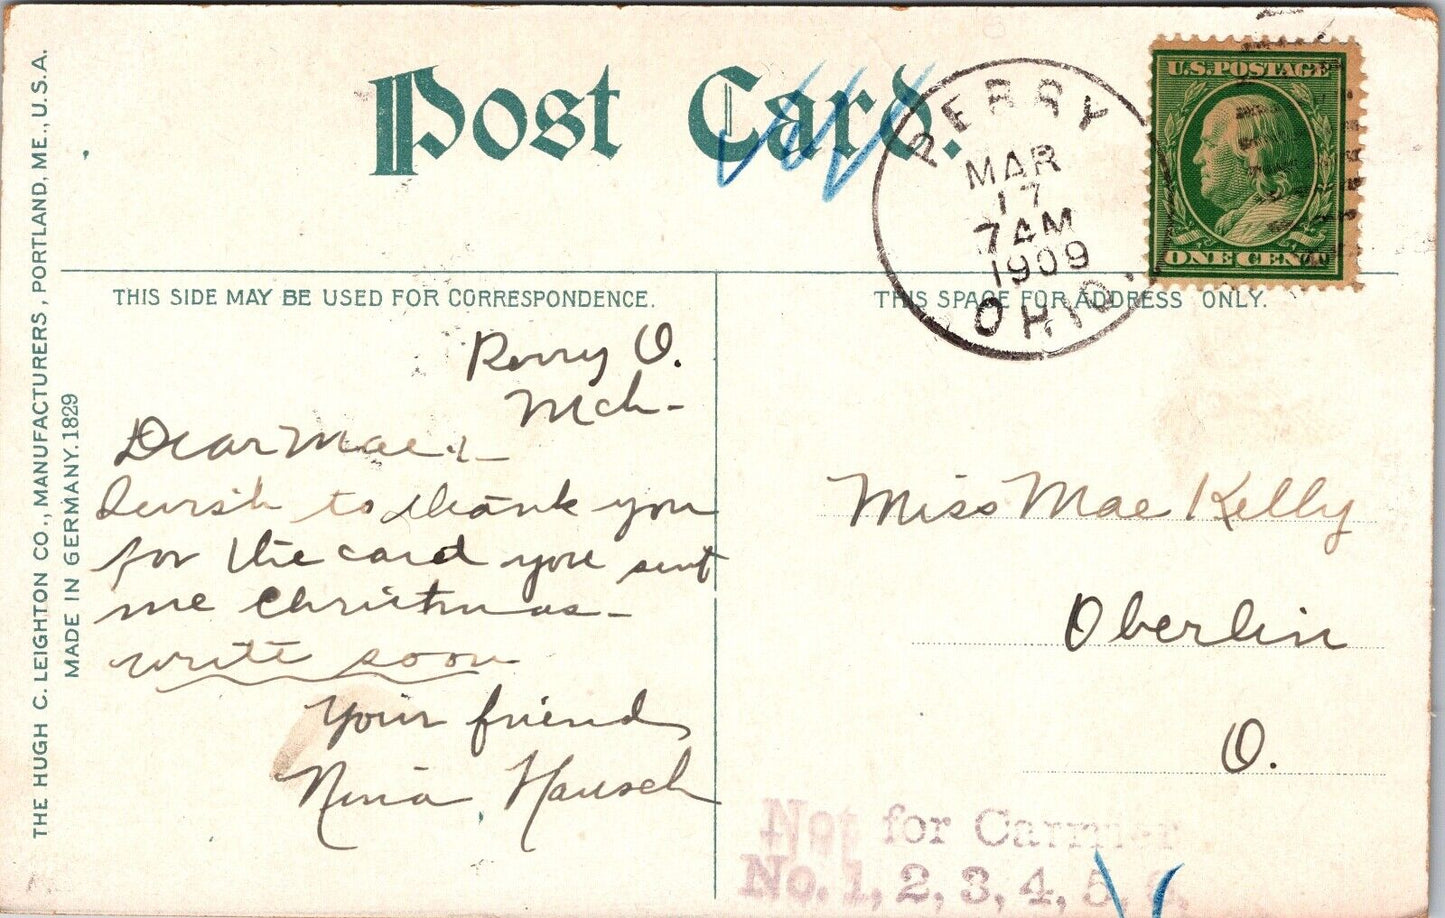 Post Card.
PERRY
MAR
17
7 AM
1909
OHIO.
U.S. POSTAGE
ONE CENT
THIS SIDE MAY BE USED FOR CORRESPONDENCE.
THIS SPACE FOR ADDRESS ONLY.
THE HUGH C. LEIGHTON CO., MANUFACTURERS, PORTLAND, ME., U.S.A.
MADE IN GERMANY. 1829
Perry O.
Mch-
Dear Mae:-
I wish to thank you
for the card you sent
me Christmas-
write soon
Your friend
Nina Hausch
Miss Mae Kelly
Oberlin
O.
Not for Carrier
No. 1, 2, 3, 4, 5,